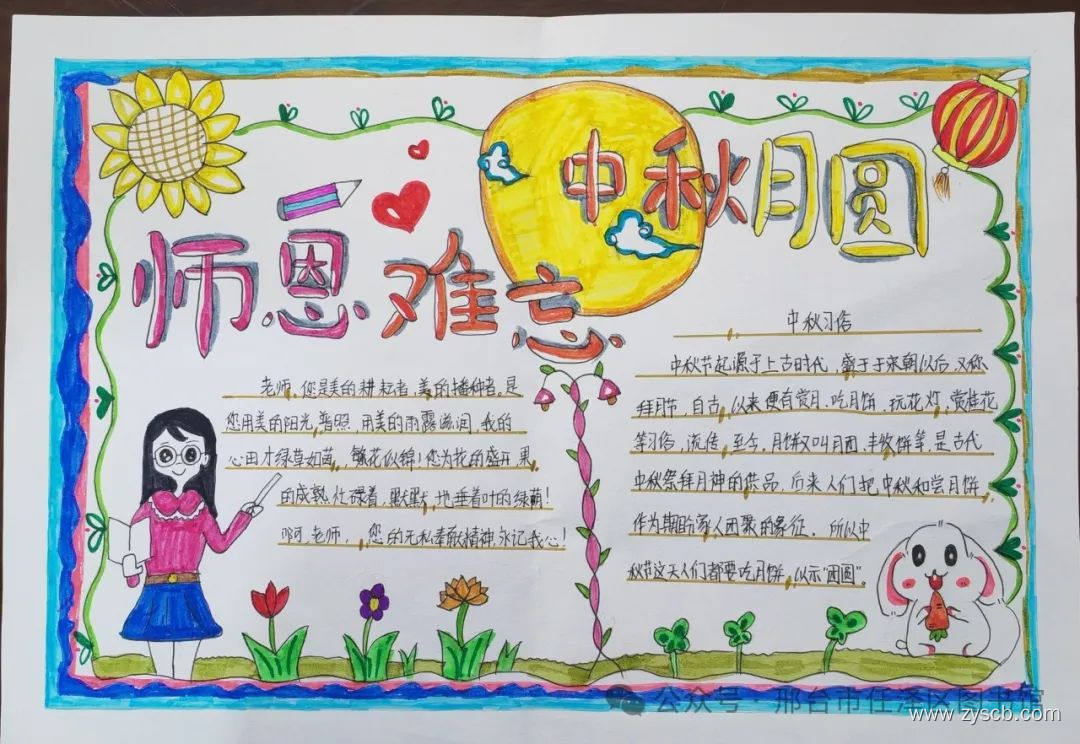 中秋月圆
师恩难忘
老师,您是美的耕耘者,美的播种者。是
您用美的阳光普照,用美的雨露滋润,我的
心田才绿草如茵,繁花似锦!您为花的盛开,果
的成熟忙碌着,默默地垂着叶的绿荫!
啊,老师,您的无私奉献精神永记我心!
中秋习俗
中秋节起源于上古时代,盛于于宋朝以后,又称
拜月节,自古,以来便有赏月、吃月饼,玩花灯,赏桂花
等习俗,流传,至今。月饼又叫月团、丰收饼等,是古代
中秋祭拜月神的供品,后来人们把中秋和尝月饼,
作为期盼家人团聚的象征。所以中
秋节这天人们都要吃月饼,以示"团圆"。
公众号·邢台市任泽区图书馆
www.zyscb.com